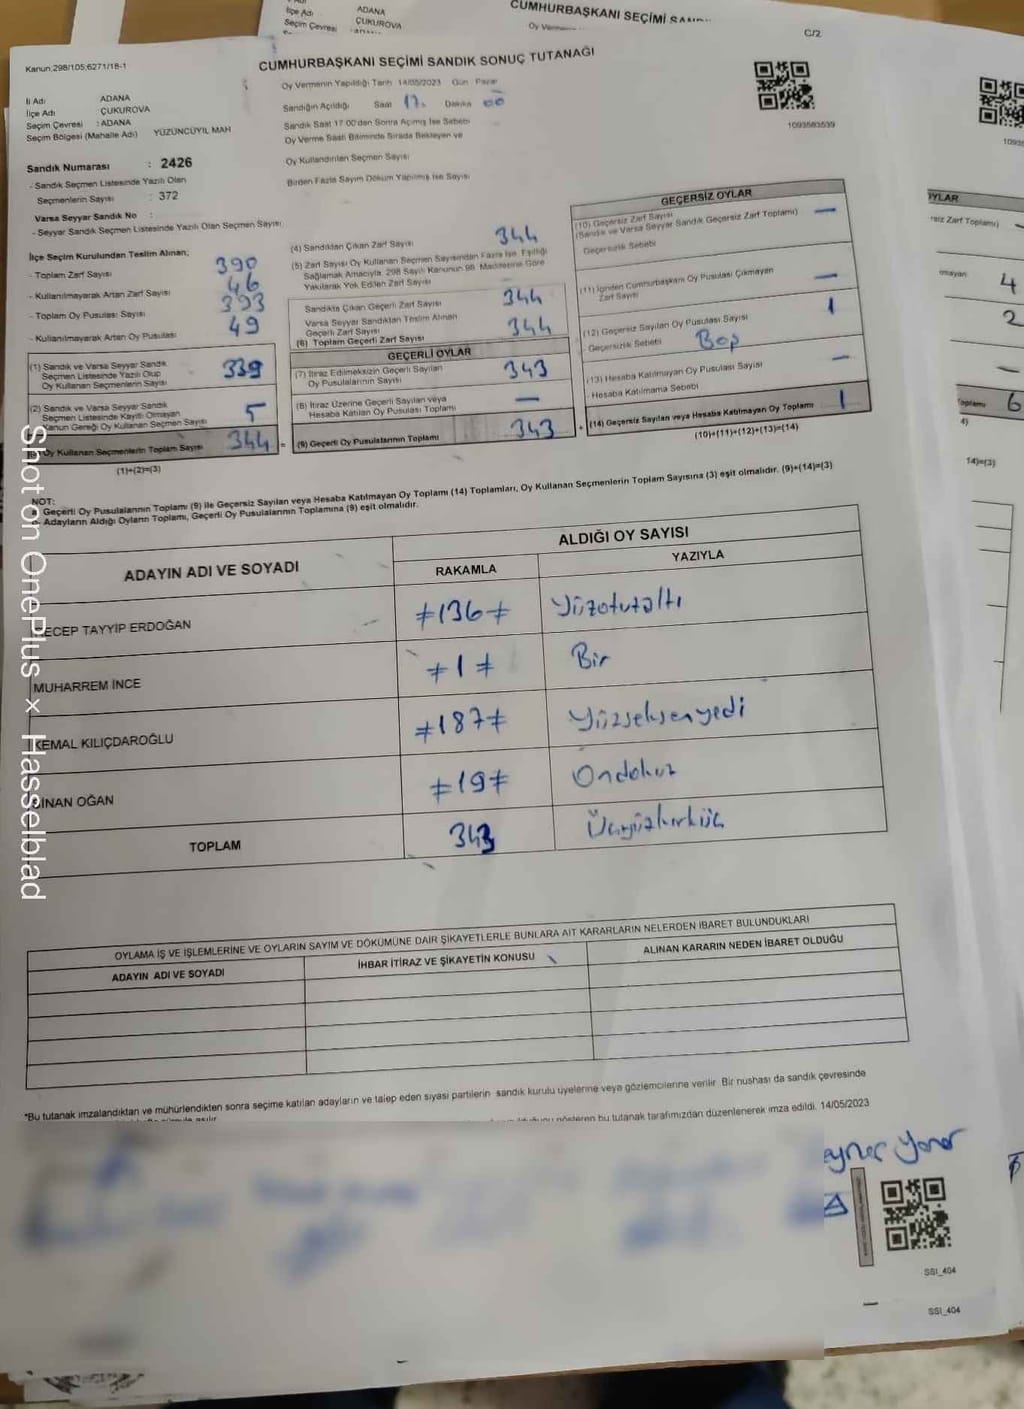 İlçe Adı ADANA
Seçim Çevresi ÇUKUROVA
CUMHURBAŞKANI SEÇİMİ
C/2
Kanun:298/105;6271/18-1
CUMHURBAŞKANI SEÇİMİ SANDIK SONUÇ TUTANAĞI
İl Adı ADANA
İlçe Adı ÇUKUROVA
Seçim Çevresi : ADANA
Seçim Bölgesi (Mahalle Adı) YÜZÜNCÜYIL MAH
Sandık Numarası : 2426
- Sandık Seçmen Listesinde Yazılı Olan
Seçmenlerin Sayısı : 372
Varsa Seyyar Sandık No :
- Seyyar Sandık Seçmen Listesinde Yazılı Olan Seçmen Sayısı
Oy Vermenin Yapıldığı Tarih 14/05/2023 Gün Pazar
Sandığın Açıldığı Saat 17. Dakika 00
Sandık Saat 17:00'den Sonra Açılmış İse Sebebi
Oy Verme Saati Bitiminde Sırada Bekleyen ve
Oy Kullandırılan Seçmen Sayısı
Birden Fazla Sayım Döküm Yapılmış İse Sayısı
1093583539
İlçe Seçim Kurulundan Teslim Alınan;
- Toplam Zarf Sayısı 390
- Kullanılmayarak Artan Zarf Sayısı 46
- Toplam Oy Pusulası Sayısı 393
- Kullanılmayarak Artan Oy Pusulası 49
(1) Sandık ve Varsa Seyyar Sandık
Seçmen Listesinde Yazılı Olup
Oy Kullanan Seçmenlerin Sayısı 339
(2) Sandık ve Varsa Seyyar Sandık
Seçmen Listesinde Kayıtlı Olmayan
Kanun Gereği Oy Kullanan Seçmen Sayısı 5
Oy Kullanan Seçmenlerin Toplam Sayısı 344 =
(1)+(2)=(3)
(4) Sandıktan Çıkan Zarf Sayısı 344
(5) Zarf Sayısı Oy Kullanan Seçmen Sayısından Fazla İse, Eşitliği
Sağlamak Amacıyla, 298 Sayılı Kanunun 98. Maddesine Göre
Yakılarak Yok Edilen Zarf Sayısı
Sandıkta Çıkan Geçerli Zarf Sayısı 344
Varsa Seyyar Sandıktan Teslim Alınan
Geçerli Zarf Sayısı
(6) Toplam Geçerli Zarf Sayısı 344
GEÇERLİ OYLAR
(7) İtiraz Edilmeksizin Geçerli Sayılan
Oy Pusulalarının Sayısı 343
(8) İtiraz Üzerine Geçerli Sayılan veya
Hesaba Katılan Oy Pusulası Toplamı —
(9) Geçerli Oy Pusulalarının Toplamı 343 +
GEÇERSİZ OYLAR
(10) Geçersiz Zarf Sayısı —
(Sandık ve Varsa Seyyar Sandık Geçersiz Zarf Toplamı)
Geçersizlik Sebebi
(11) İçinden Cumhurbaşkanı Oy Pusulası Çıkmayan
Zarf Sayısı —
(12) Geçersiz Sayılan Oy Pusulası Sayısı 1
Geçersizlik Sebebi Boş
(13) Hesaba Katılmayan Oy Pusulası Sayısı —
- Hesaba Katılmama Sebebi
(14) Geçersiz Sayılan veya Hesaba Katılmayan Oy Toplamı 1
(10)+(11)+(12)+(13)=(14)
NOT:
Geçerli Oy Pusulalarının Toplamı (9) ile Geçersiz Sayılan veya Hesaba Katılmayan Oy Toplamı (14) Toplamları, Oy Kullanan Seçmenlerin Toplam Sayısına (3) eşit olmalıdır. (9)+(14)=(3)
- Adayların Aldığı Oyların Toplamı, Geçerli Oy Pusulalarının Toplamına (9) eşit olmalıdır.
ADAYIN ADI VE SOYADI
ALDIĞI OY SAYISI
RAKAMLA YAZIYLA
RECEP TAYYİP ERDOĞAN ≠136≠ Yüzotuzaltı
MUHARREM İNCE ≠1≠ Bir
KEMAL KILIÇDAROĞLU ≠187≠ Yüzseksenyedi
SİNAN OĞAN ≠19≠ Ondokuz
TOPLAM 343 Üçyüzkırküç
OYLAMA İŞ VE İŞLEMLERİNE VE OYLARIN SAYIM VE DÖKÜMÜNE DAİR ŞİKAYETLERLE BUNLARA AİT KARARLARIN NELERDEN İBARET BULUNDUKLARI
ADAYIN ADI VE SOYADI
İHBAR İTİRAZ VE ŞİKAYETİN KONUSU
ALINAN KARARIN NEDEN İBARET OLDUĞU
*Bu tutanak imzalandıktan ve mühürlendikten sonra seçime katılan adayların ve talep eden siyasi partilerin sandık kurulu üyelerine veya gözlemcilerine verilir. Bir nushası da sandık çevresinde
gösteren bu tutanak tarafımızdan düzenlenerek imza edildi. 14/05/2023
SSI_404
SSI_404
Shot on OnePlus × Hasselblad
YLAR
4
2
—
Toplamı 6
14)=(3)